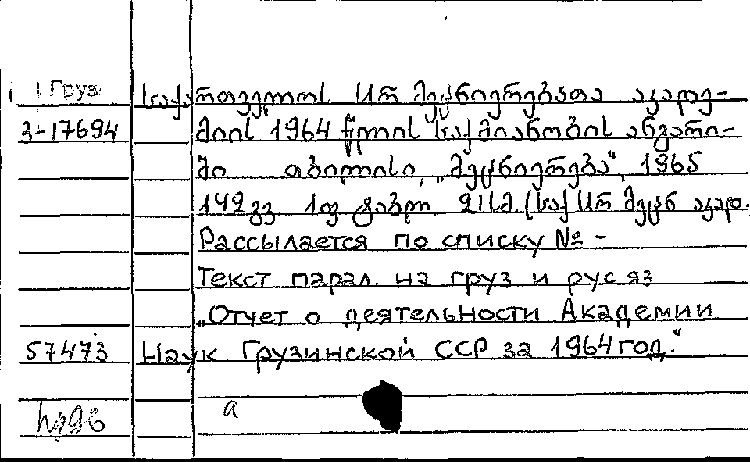 Груз საქართველოს სსრ მეცნიერებათა აკადე-
3-17694 მიის 1964 წლის საქმიანობის ანგარი-
ში თბილისი, „მეცნიერება“, 1965
142 გვ. 1 ფ ტაბლ. 21 სმ. (საქ სსრ მეცნ აკად.
Рассылается по списку №-
Текст парал. на груз и рус яз
„Отчет о деятельности Академии
57473 Наук Грузинской ССР за 1964 год.“
а